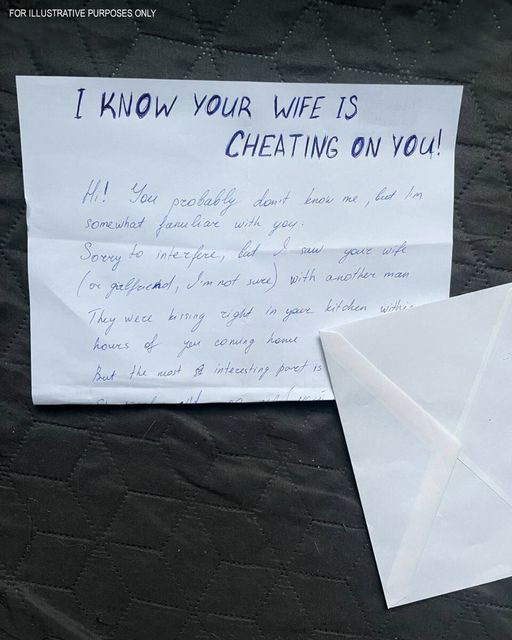 FOR ILLUSTRATIVE PURPOSES ONLY
I KNOW YOUR WIFE IS
CHEATING ON YOU!
Hi! You probably don't know me, but I'm
somewhat familiar with you.
Sorry to interfire, but I saw your wife
(or girlfriend, I'm not sure) with another man
They were kissing right in your kitchen within
hours of you coming home
But the most interesting part is